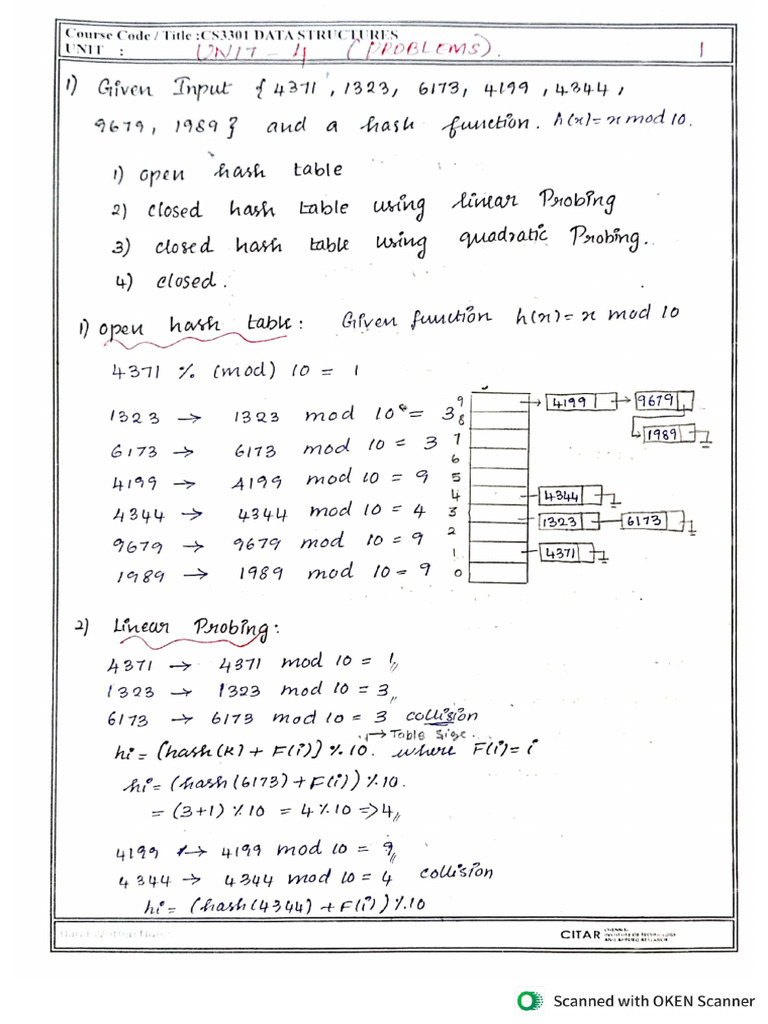 Course Code / Title :CS3301 DATA STRUCTURES
UNIT : UNIT - 4 (PROBLEMS). 1
1) Given Input {4371, 1323, 6173, 4199, 4344,
9679, 1989} and a hash function. h(x)= x mod 10.
1) open hash table
2) closed hash table using linear Probing
3) closed hash table using quadratic Probing.
4) closed.
1) open hash table: Given function h(x)= x mod 10
4371 % (mod) 10 = 1
1323 → 1323 mod 10 = 3
6173 → 6173 mod 10 = 3
4199 → 4199 mod 10 = 9
4344 → 4344 mod 10 = 4
9679 → 9679 mod 10 = 9
1989 → 1989 mod 10 = 9
9 → 4199 → 9679
8
1989
7
6
5
4 4344
3 1323 6173
2
1 4371
0
2) Linear Probing:
4371 → 4371 mod 10 = 1,,
1323 → 1323 mod 10 = 3,,
6173 → 6173 mod 10 = 3 collision
→ Table Size.
hi = (hash(K) + F(i)) % 10. where F(i) = i
hi = (hash(6173) + F(i)) % 10.
= (3+1) % 10 = 4 % 10 => 4,,
4199 → 4199 mod 10 = 9,,
4344 → 4344 mod 10 = 4 collision
hi = (hash(4344) + F(i)) % 10
CITAR
Scanned with OKEN Scanner